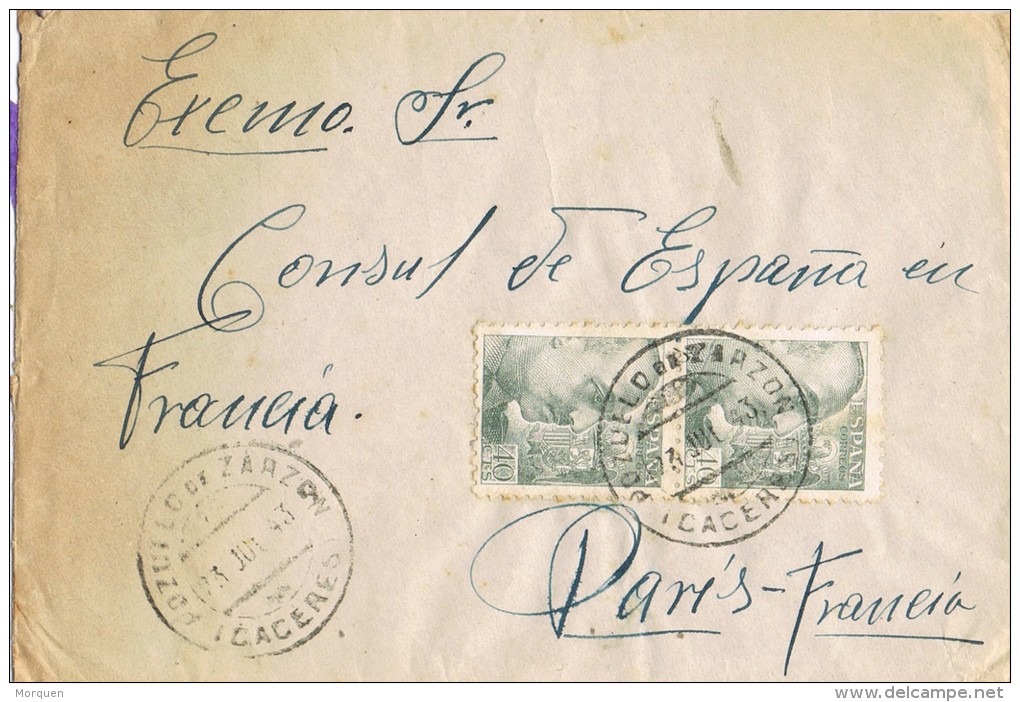 Exemo. Sr.
Consul de España en
Francia.
40
CTS
ESPAÑA
40
CTS
ESPAÑA
CORREOS
POZUELO DE ZARZON
23 JUL 43
(CACERES)
POZUELO DE ZARZON
23 JUL 43
(CACERES)
París - Francia
Morquen
www.delcampe.net